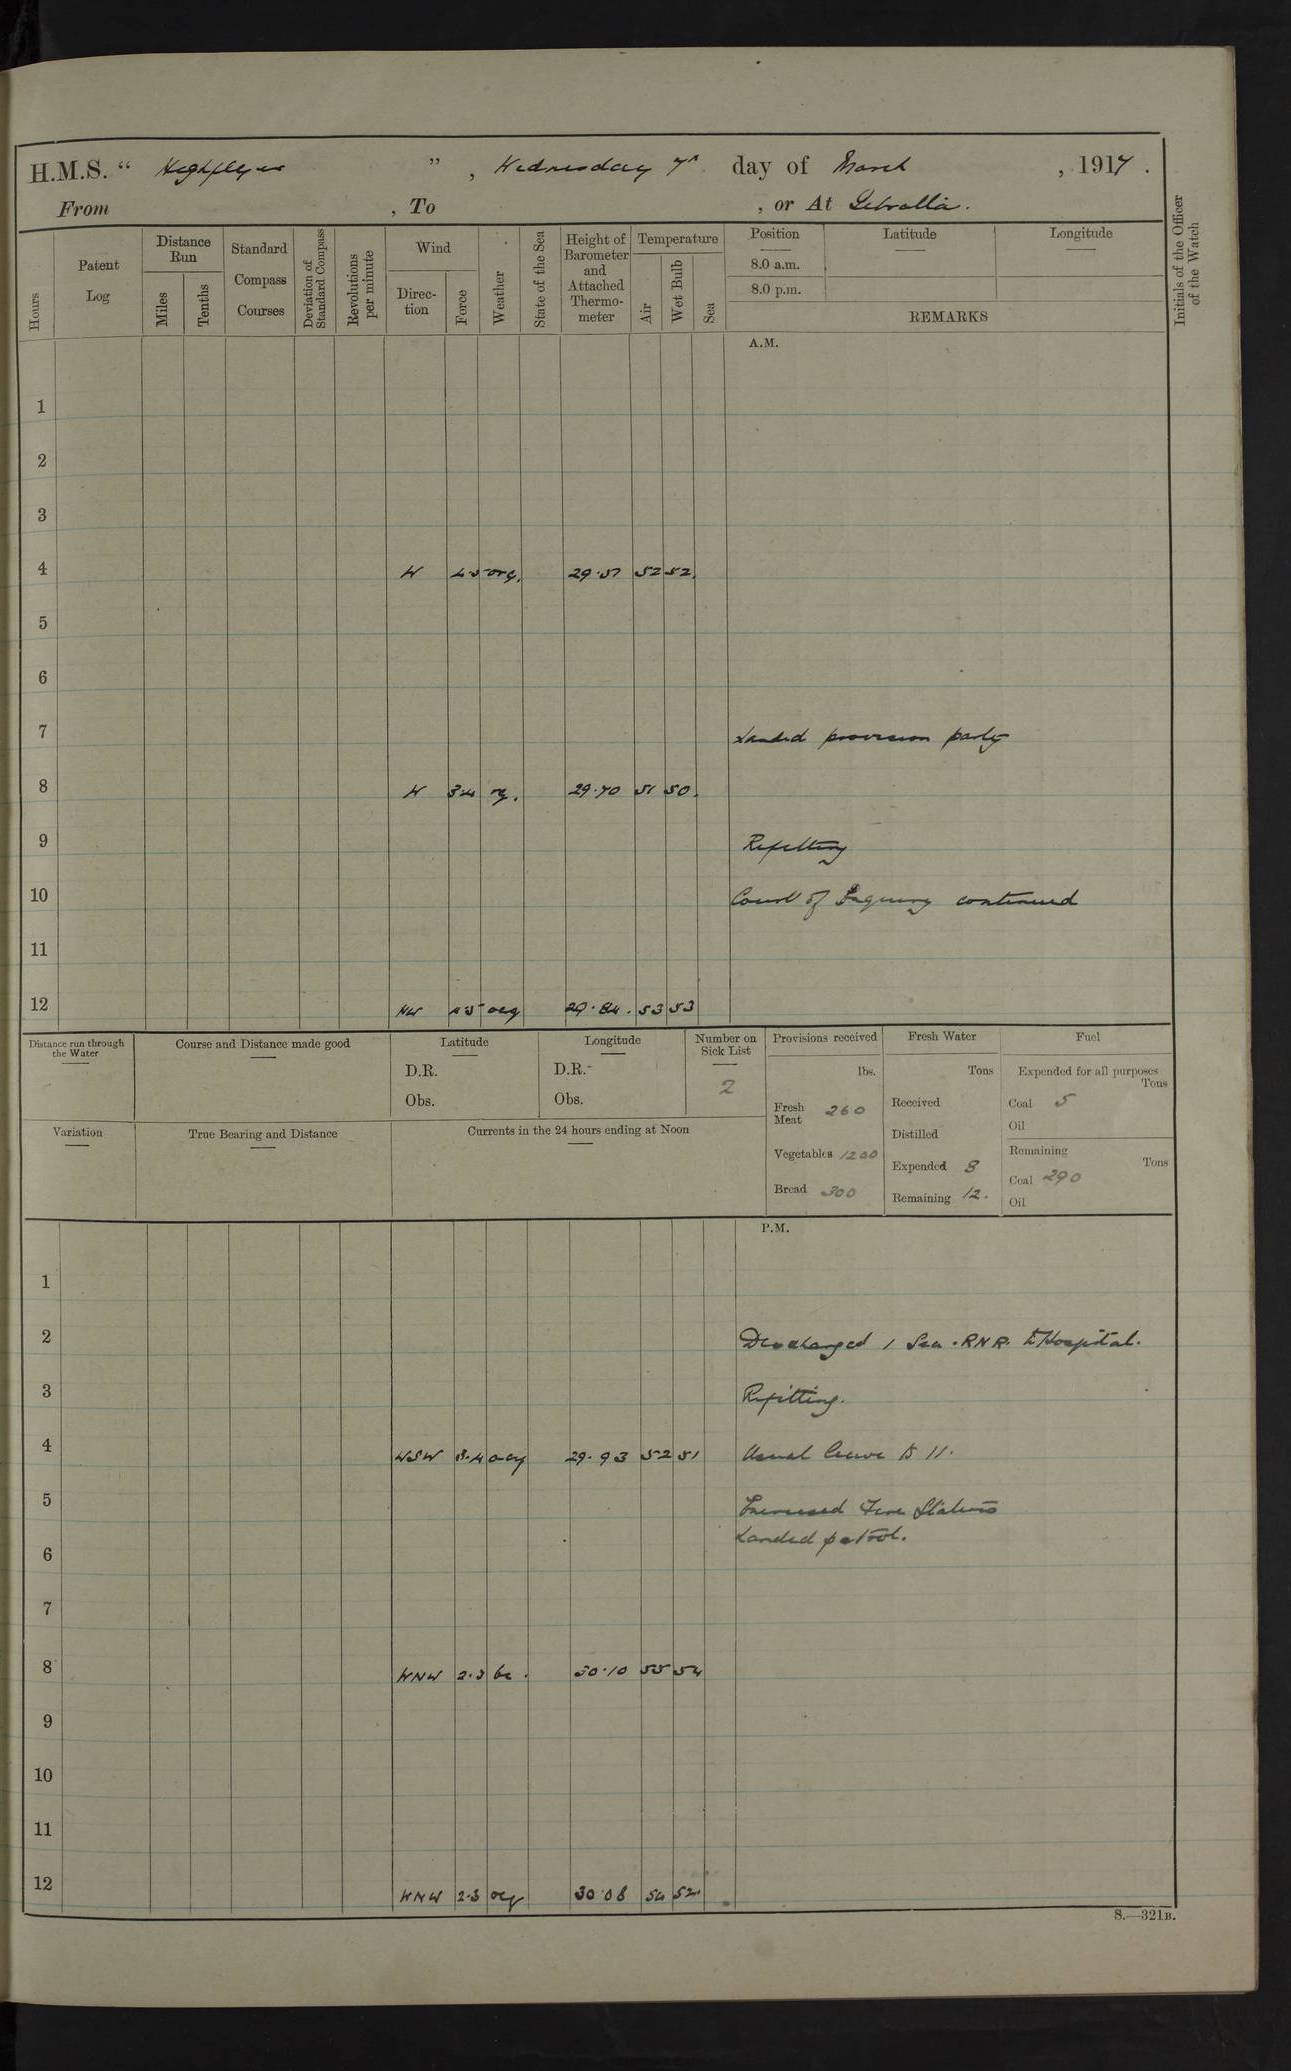 H.M.S. “ Highflyer ”, Wednesday 7th day of March, 1917.
From , To , or At Gibraltar.
Hours
Patent Log
Distance Run
Miles
Tenths
Standard Compass Courses
Deviation of Standard Compass
Revolutions per minute
Wind
Direction
Force
Weather
State of the Sea
Height of Barometer and Attached Thermometer
Temperature
Air
Wet Bulb
Sea
Position
Latitude
Longitude
8.0 a.m.
8.0 p.m.
REMARKS
Initials of the Officer of the Watch
A.M.
1
2
3
4 W 4.5 org. 29.57 52 52
5
6
7 Landed provision party
8 W 3.4 og. 29.70 51 50
9 Refitting
10 Court of Inquiry continued
11
12 NW 4.5 ocg 29.84 53 53
Distance run through the Water
Course and Distance made good
Latitude
D.R.
Obs.
Longitude
D.R.
Obs.
Number on Sick List
2
Provisions received
lbs.
Fresh Meat 260
Vegetables 1200
Bread 300
Fresh Water
Tons
Received
Distilled
Expended 8
Remaining 12.
Fuel
Expended for all purposes
Tons
Coal 5
Oil
Remaining
Tons
Coal 290
Oil
Variation
True Bearing and Distance
Currents in the 24 hours ending at Noon
P.M.
1
2 Discharged 1 Sea. RNR. to Hospital.
3 Refitting.
4 WSW 3.4 29.93 52 51 Usual leave to 11.
5 Exercised Fire Stations
Landed patrol.
6
7
8 WNW 2.3 bc. 30.10 55 54
9
10
11
12 WNW 2.3 ocg 30.08 54 52
S.—321B.